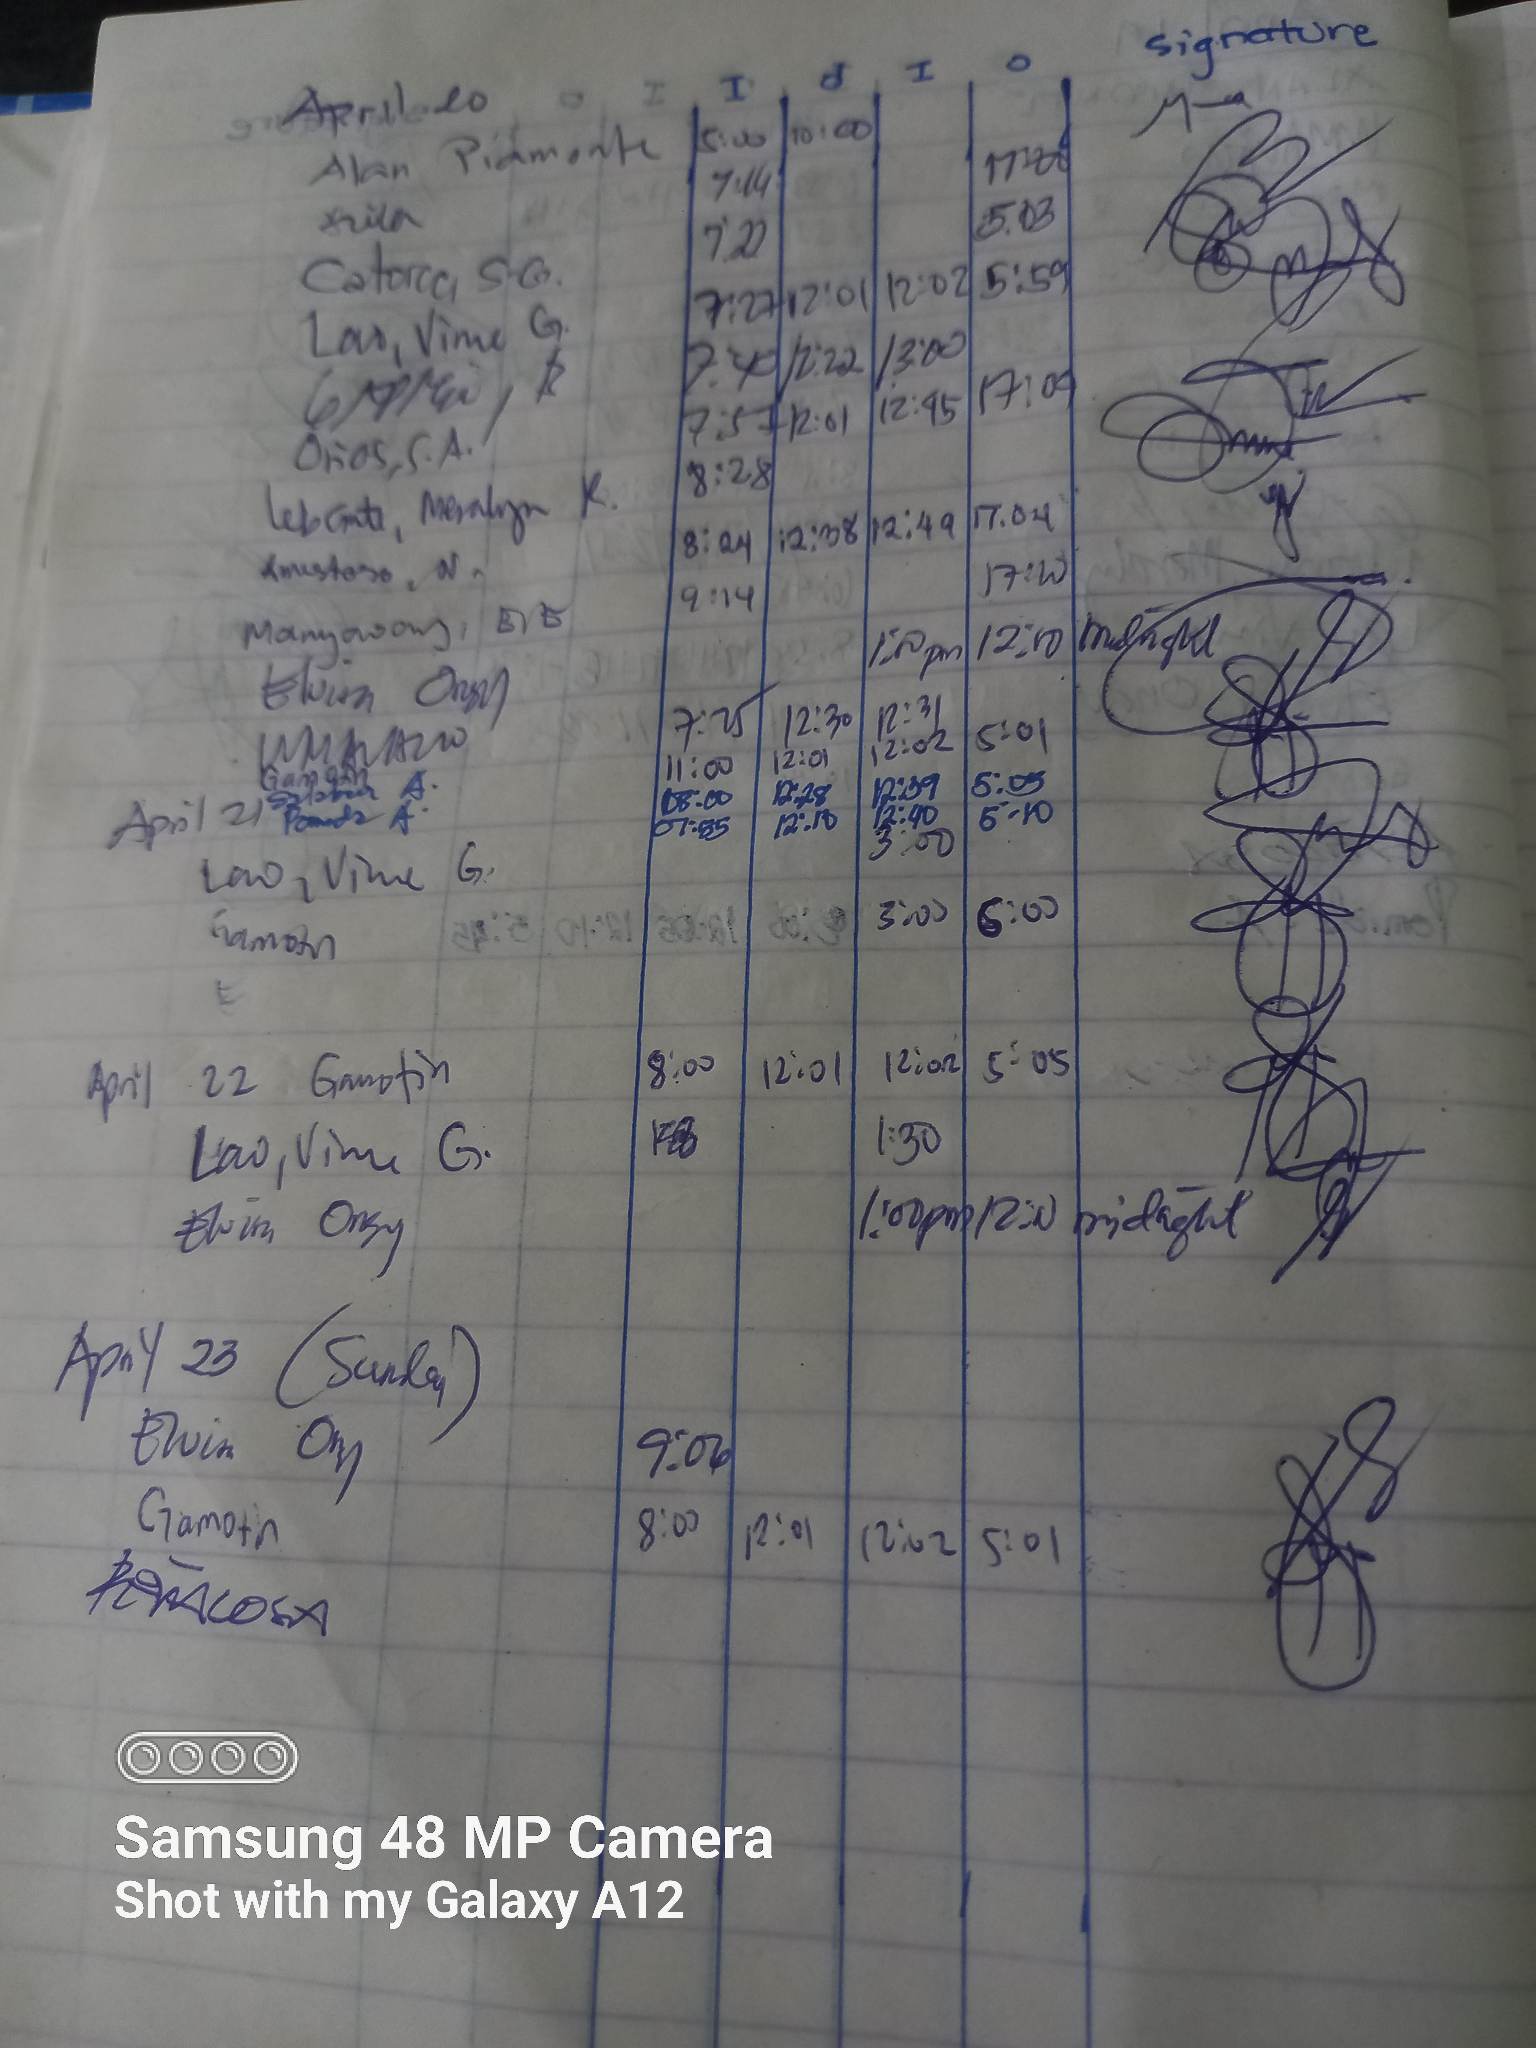 signature
April 20 I O I O
Alan Piamonte 5:00 10:00
7:14 17:00
7:27 5:03
Catorce, S.G.
7:27 12:01 12:02 5:59
Lao, Vime G.
7:40 12:22 13:00
7:57 12:01 12:45 17:09
Orios, S.A.
8:28
Meralyn R.
8:24 12:38 12:49 17:04
9:14 17:10
1:10pm 12:10 midnight
Elvin Ongy
7:25 12:30 12:31
11:00 12:01 12:02 5:01
Gamotin
A. 08:00 12:28 12:39 5:05
April 21 A. 07:55 12:10 12:40 5:10
Lao, Vime G. 3:00
Gamotin 3:00 6:00
E
April 22 Gamotin 8:00 12:01 12:02 5:05
Lao, Vime G. 1:30
Elvin Ongy 1:00pm 12:10 midnight
April 23 (Sunday)
Elvin Ongy 9:06
Gamotin 8:00 12:01 12:02 5:01
PEÑACOSA
Samsung 48 MP Camera
Shot with my Galaxy A12